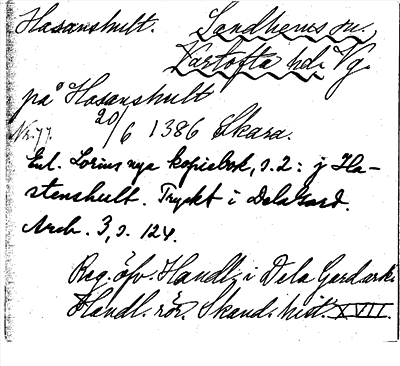 Hasanshult. Sandhems sn.
Vartofta hd. Vg.
på Hasanshult
20/6 1386 Skara.
Nr. 77.
Enl. Lorins nya kopiebok, s. 2: j Ha-
stenshult. Tryckt i DelaGard.
Arch. 3, s. 124.
Reg. öfv. Handl. i Dela Gard. ark.
Handl. rör. Skand. hist. XVII.